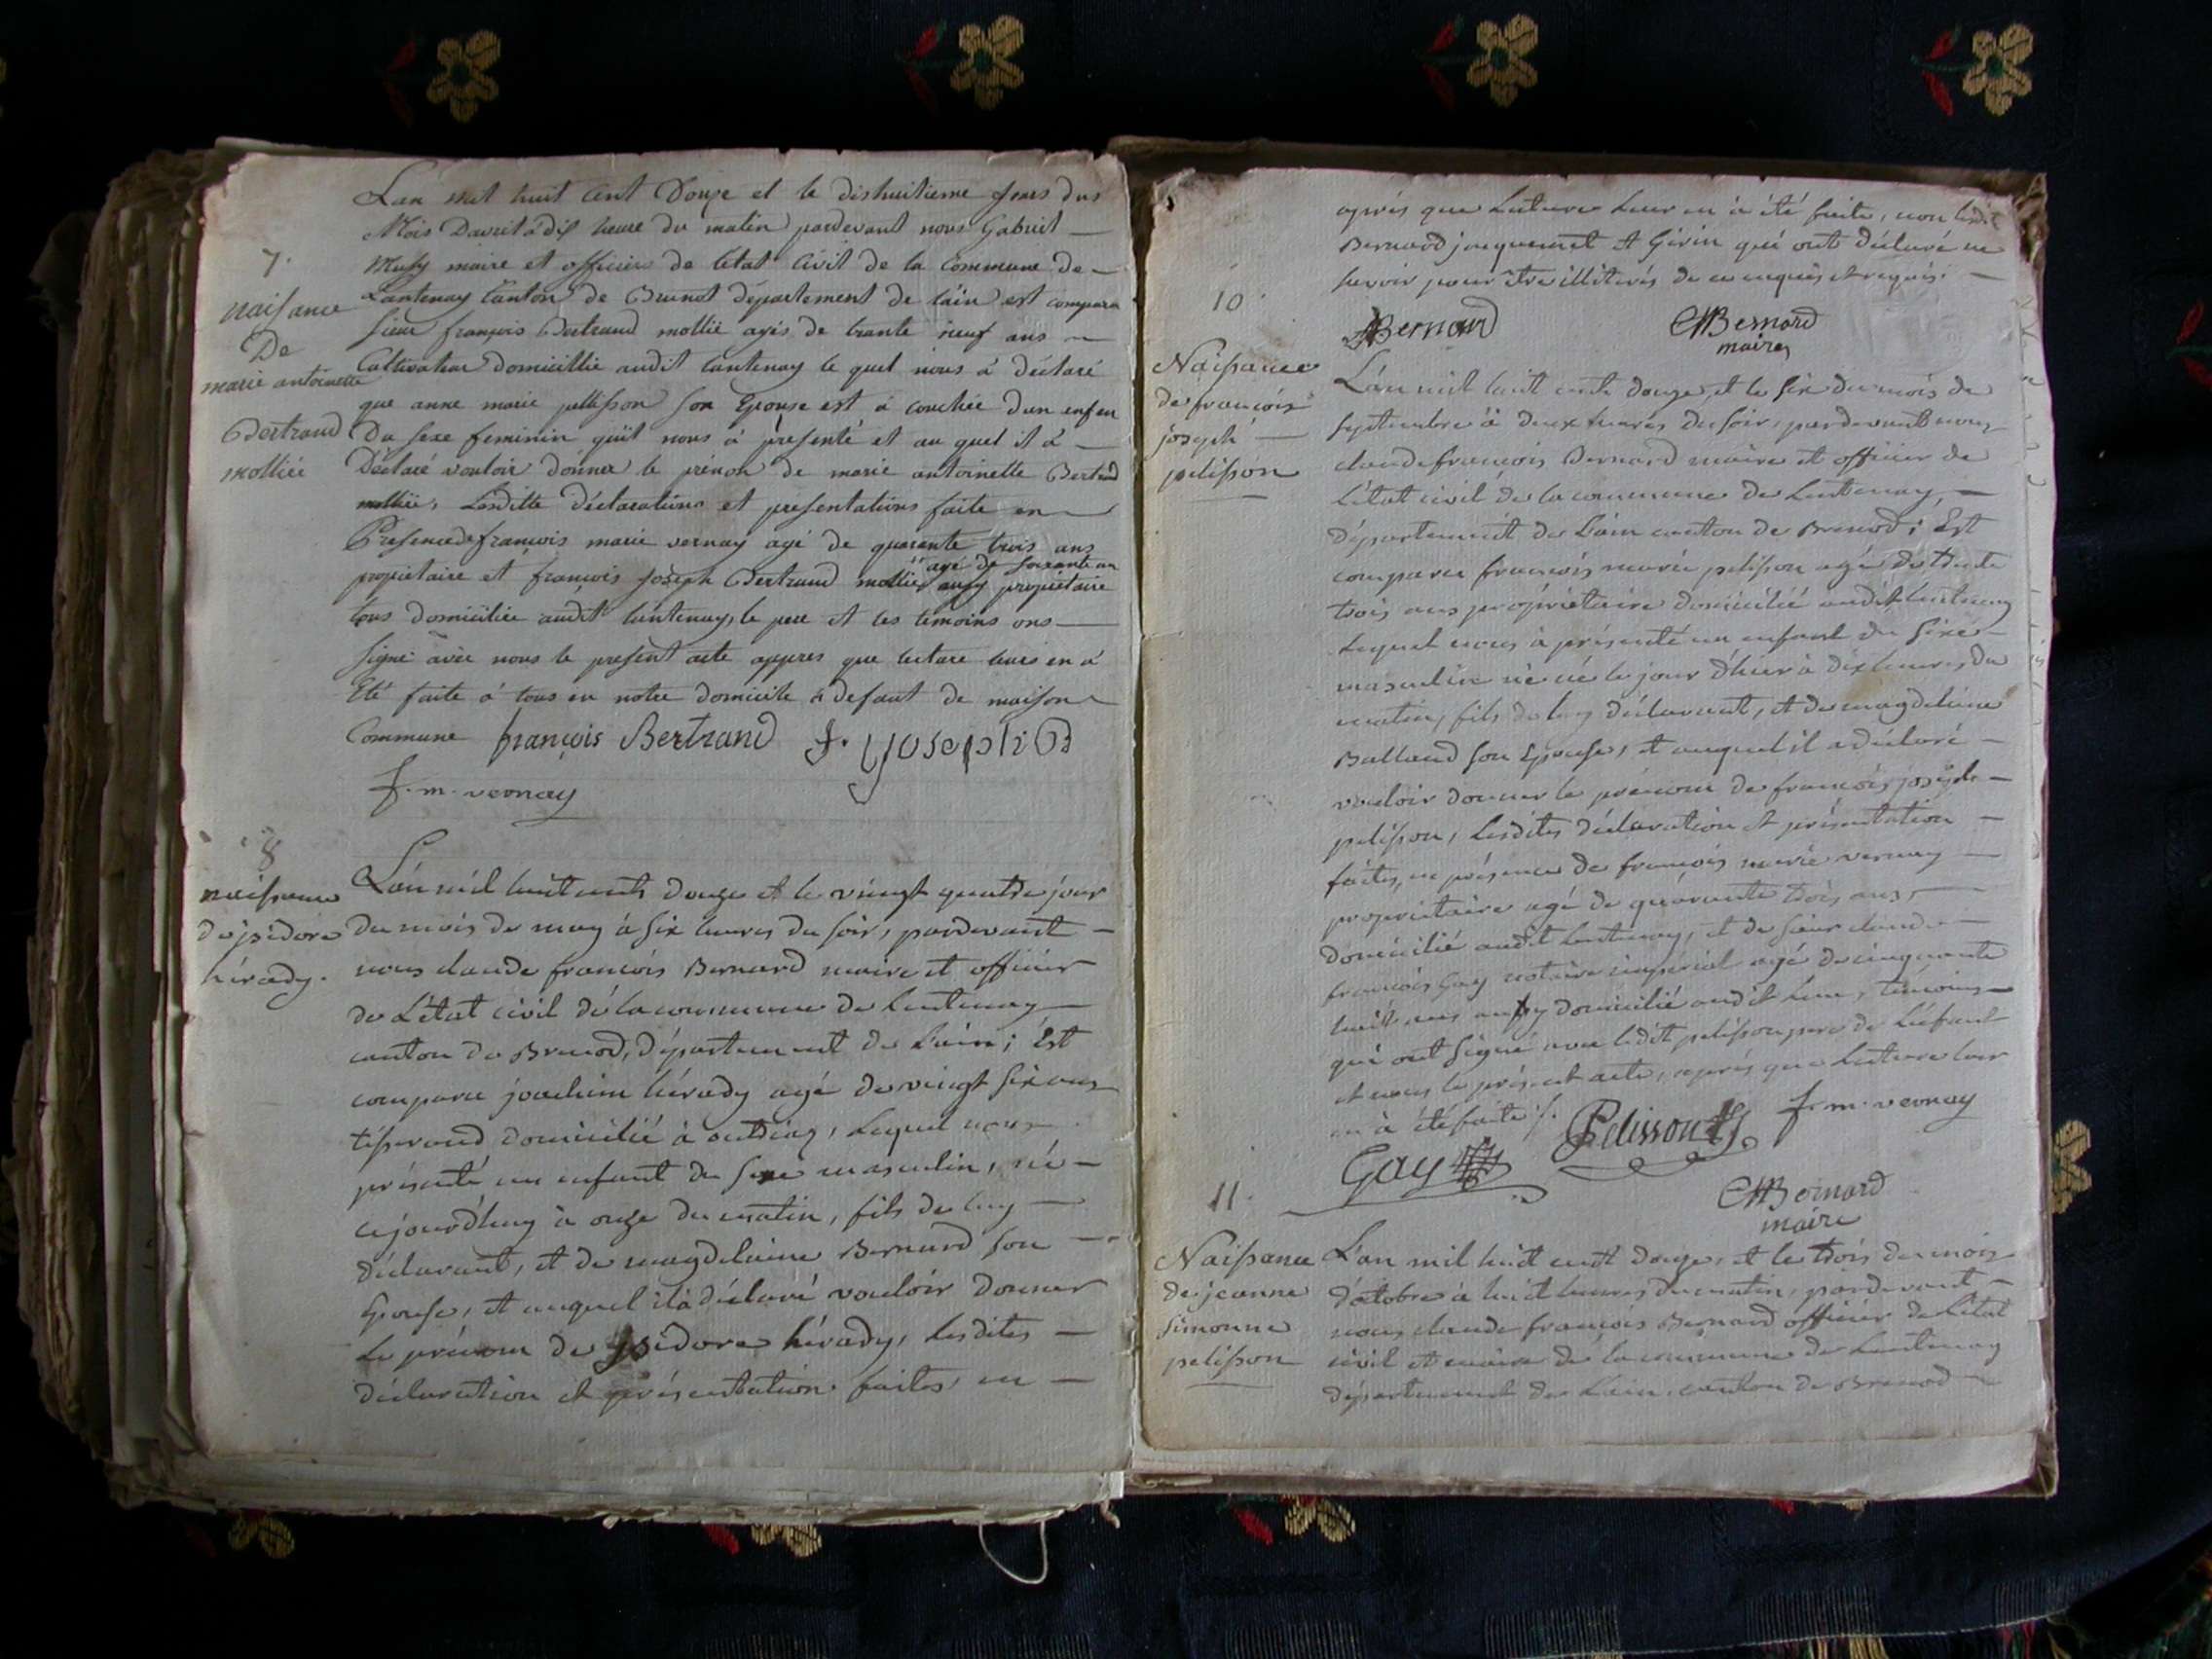 7.
naissance
De
marie antoinette
Bertrand
molliée
Lan mil huit cent Douze et le dishuitieme jours dus
Mois Davril à dix heure du matin pardevant nous Gabriel
Musy maire et officier de létat Civil de la Commune de
Lantenay Canton de Brunod département de láin est compara
sieur françois Bertrand mollié agés de trante neuf ans
Cultivateur domicillié audit lantenay le quel nous à déclaré
que anne marie pellisson son Epouse est à couchée dun enfen
Du sexe feminin quil nous à présenté et au quel il à
Déclaré vouloir donner le prénon de marie antoinette Bertrand
molliée, Lesditte déclarations et presentations faite en
Presence de françois marie vernay agé de quarante trois ans
propietaire et françois Joseph Bertrand mollié agé de soixante an aussy propriétaire
tous domicilié audit lantenay, le pere et les temoins ons
signé avec nous le present acte appres que lecture leurs en à
Eté faite à tous en notre domicile à defaut de maison
Commune françois Bertrand f. joseph B
f. m. vernay
8
naissance
d'isidore
hérady.
L'an mil huit cents douze et le vingt quatre jour
du mois de may à six heures du soir, pardevant
nous claude françois Bernard maire et officier
de L'état civil de la commune de Lantenay
canton de Brenod, département de L'ain; Est
comparu joachim hérady agé de vingt six ans
tisserand domicilié à outriaz, Lequel nous
présenté un enfant du sexe masculin, né
cejourd'huy à onze du matin, fils de luy
déclarant, et de magdelaine Bernard son
Epouse, et auquel il à déclaré vouloir donner
Le prénom de ysidore hérady, Lesdites
déclaration et présentation faites, en
après que Lecture Leur en à été faite, non ledit
Bernard jacquemet et Girin qui ont déclaré ne
savoir pour être illiterés de ce enquis et requis.
Bernard
Bernard
maire
10
Naissance
de françois
joseph
pelisson
L'an mil huit cents douze, et le six du mois de
septembre à deux heures du soir, pardevant nous
claude françois Bernard maire et officier de
L'état civil de la commune de Lantenay,
département de L'ain canton de Brenod; Est
comparu françois marie pelisson agé de trente
trois ans propriétaire domicilié audit Lantenay
Lequel nous à présenté un enfant du sexe
masculin né le jour d'hier à dix heures du
matin, fils de luy déclarant, et de magdelaine
Balland son Epouse, et auquel il a déclaré
vouloir donner le prénom de françois joseph
pelisson, Lesdites déclaration et présentation
faites, en présence de françois marie vernay
propriétaire agé de quarante trois ans,
domicilié audit Lantenay, et de sieur claude
françois Gay notaire impérial agé de cinquante
huit ans aussy domicilié audit Lieu, témoins
qui ont signé avec ledit pelisson pere de L'enfant
et nous le présent acte, après que Lecture leur
en à été faite ./.
Pelisson
f. m. vernay
Gay
Bernard
maire
11.
Naissance
de jeanne
simonne
pelisson
L'an mil huit cent douze, et le trois du mois
d'octobre à huit heures du matin, pardevant
nous claude françois Bernard officier de L'état
civil et maire de la commune de Lantenay
département de L'ain, canton de Brenod